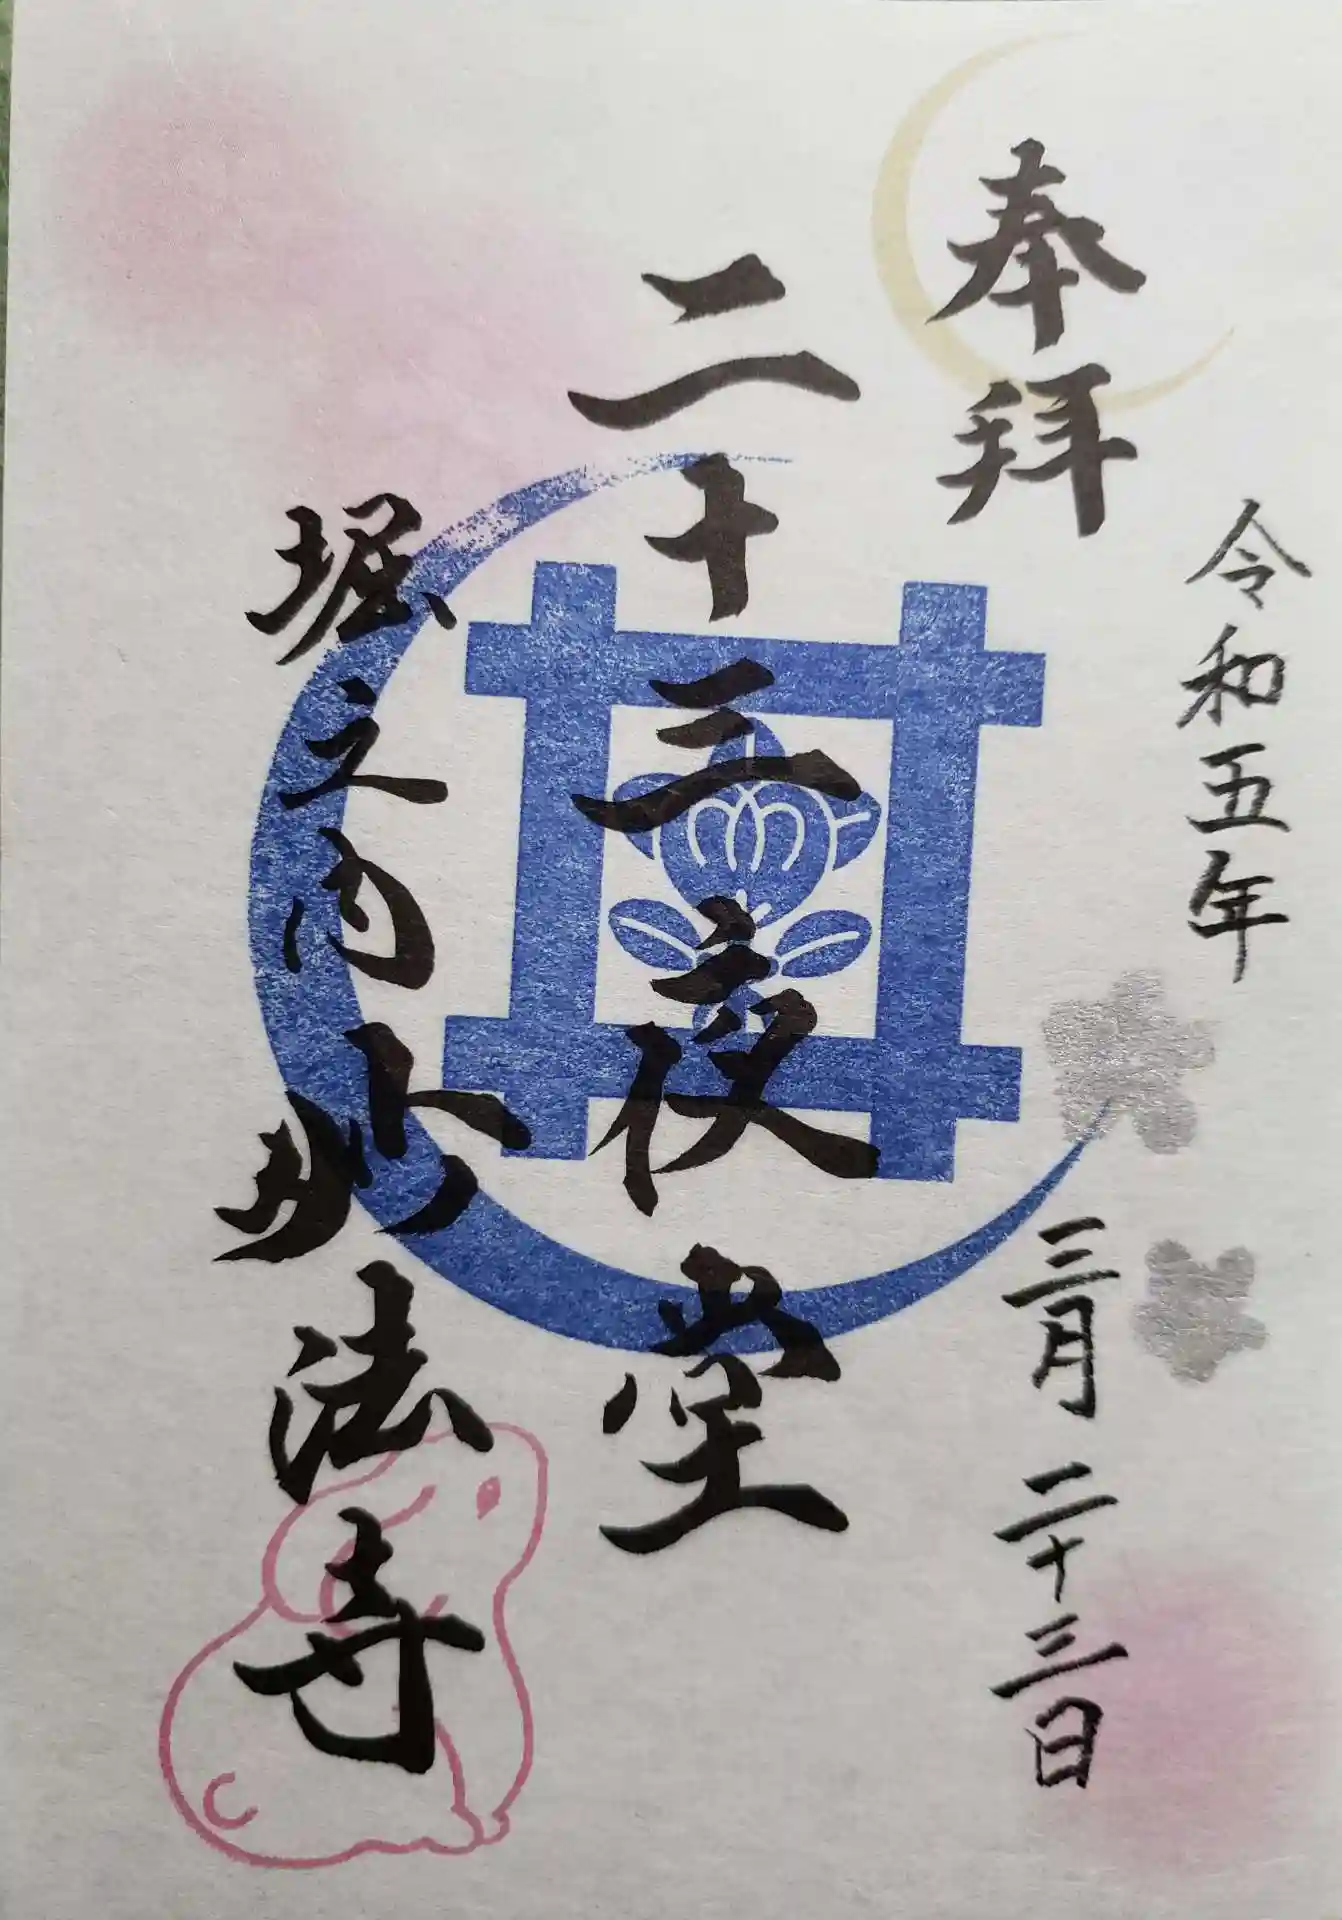 奉拝
令和五年
三月二十三日
二十三夜堂
堀之内妙法寺